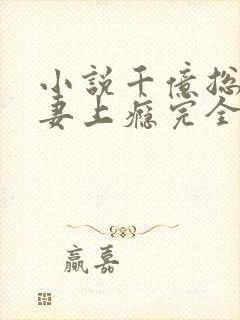 小說千億总
妻上癮完全
贏嘉